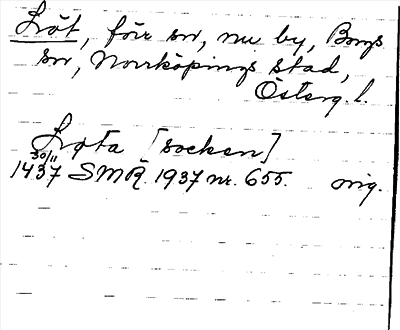 Löt, förr sn, nu by, Borgs
sn, Norrköpings stad,
Österg. l.
Løta [socken]
30/11
1437 SMR. 1937 nr. 655. orig.